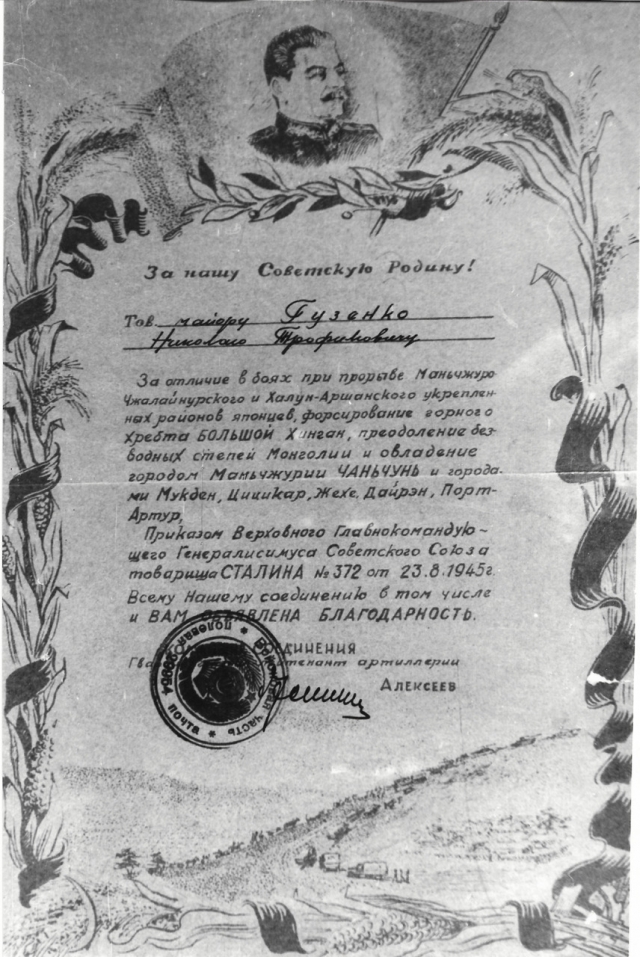 За нашу Советскую Родину!
Тов. майору Гузенко
Николаю Трофимовичу
За отличие в боях при прорыве Маньчжуро
Чжалайнурского и Халун-Аршанского укреплен-
нах районов японцев, форсирование горного
хребта БОЛЬШОЙ Хинган, преодоление без-
водных степей Монголии и овладение
городом Маньчжурии ЧАНЬЧУНЬ и города-
ми Мукден, Цицикар, Жехе, Дайрэн, Порт-
Артур,
Приказом Верховного Главнокомандую-
щего Генералисимуса Советского Союза
товарища СТАЛИНА № 372 от 23.8.1945г.
Всему Нашему соединению в том числе
и ВАМ ОБЪЯВЛЕНА БЛАГОДАРНОСТЬ.
ДИНЕНИЯ
Гва тенант артиллерии
АЛЕКСЕЕВ
полевая почта * Войсковая часть *